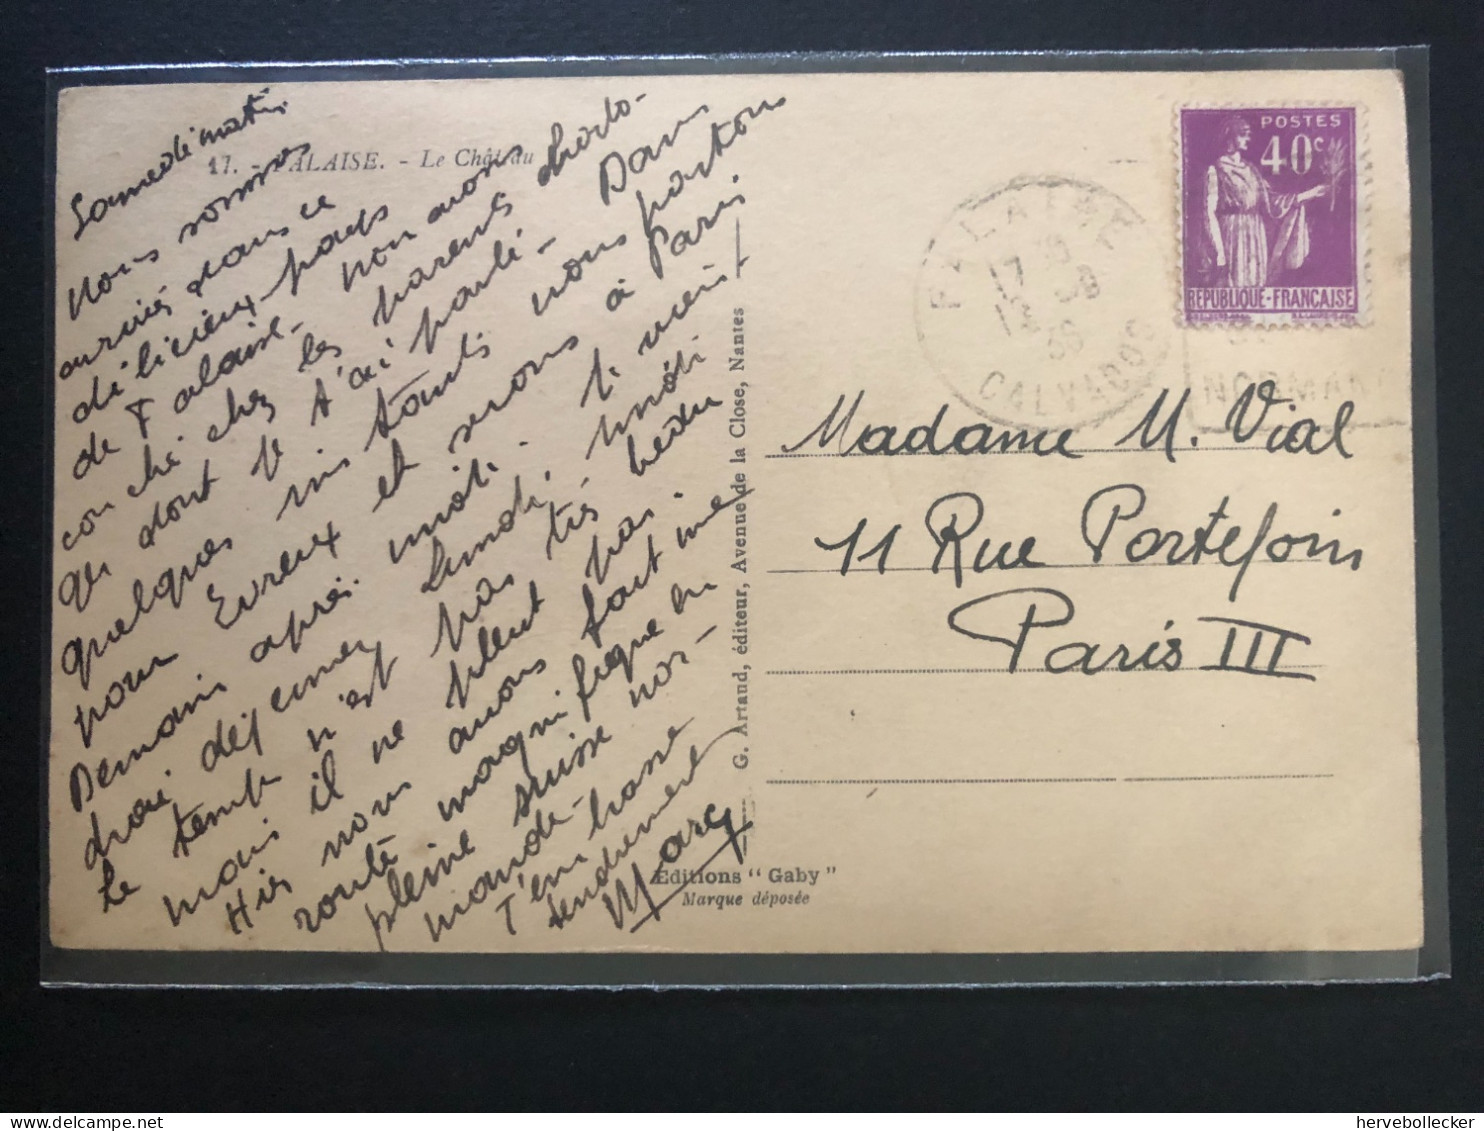 Samedi matin
17. - FALAISE. - Le Château
Nous sommes
arrivés dans ce
délicieux pays
de Falaise - nous avons
couché chez les parents
qui dont je t'ai parlé - Dans
quelques instants nous partons
pour Evreux et serons à Paris
Demain après-midi.
Le temps n'est pas très beau
mais il ne pleut pas.
Hier nous avons fait une
route magnifique en
pleine suisse nor-
mande -
T'embrasse
tendrement
Marc
POSTES
40c
REPUBLIQUE-FRANÇAISE
FALAISE
CALVADOS
NORMAN
Madame M. Vial
11 Rue Portefoin
Paris III
G. Artaud, éditeur, Avenue de la Close, Nantes
Editions "Gaby"
Marque déposée
hervebollecker